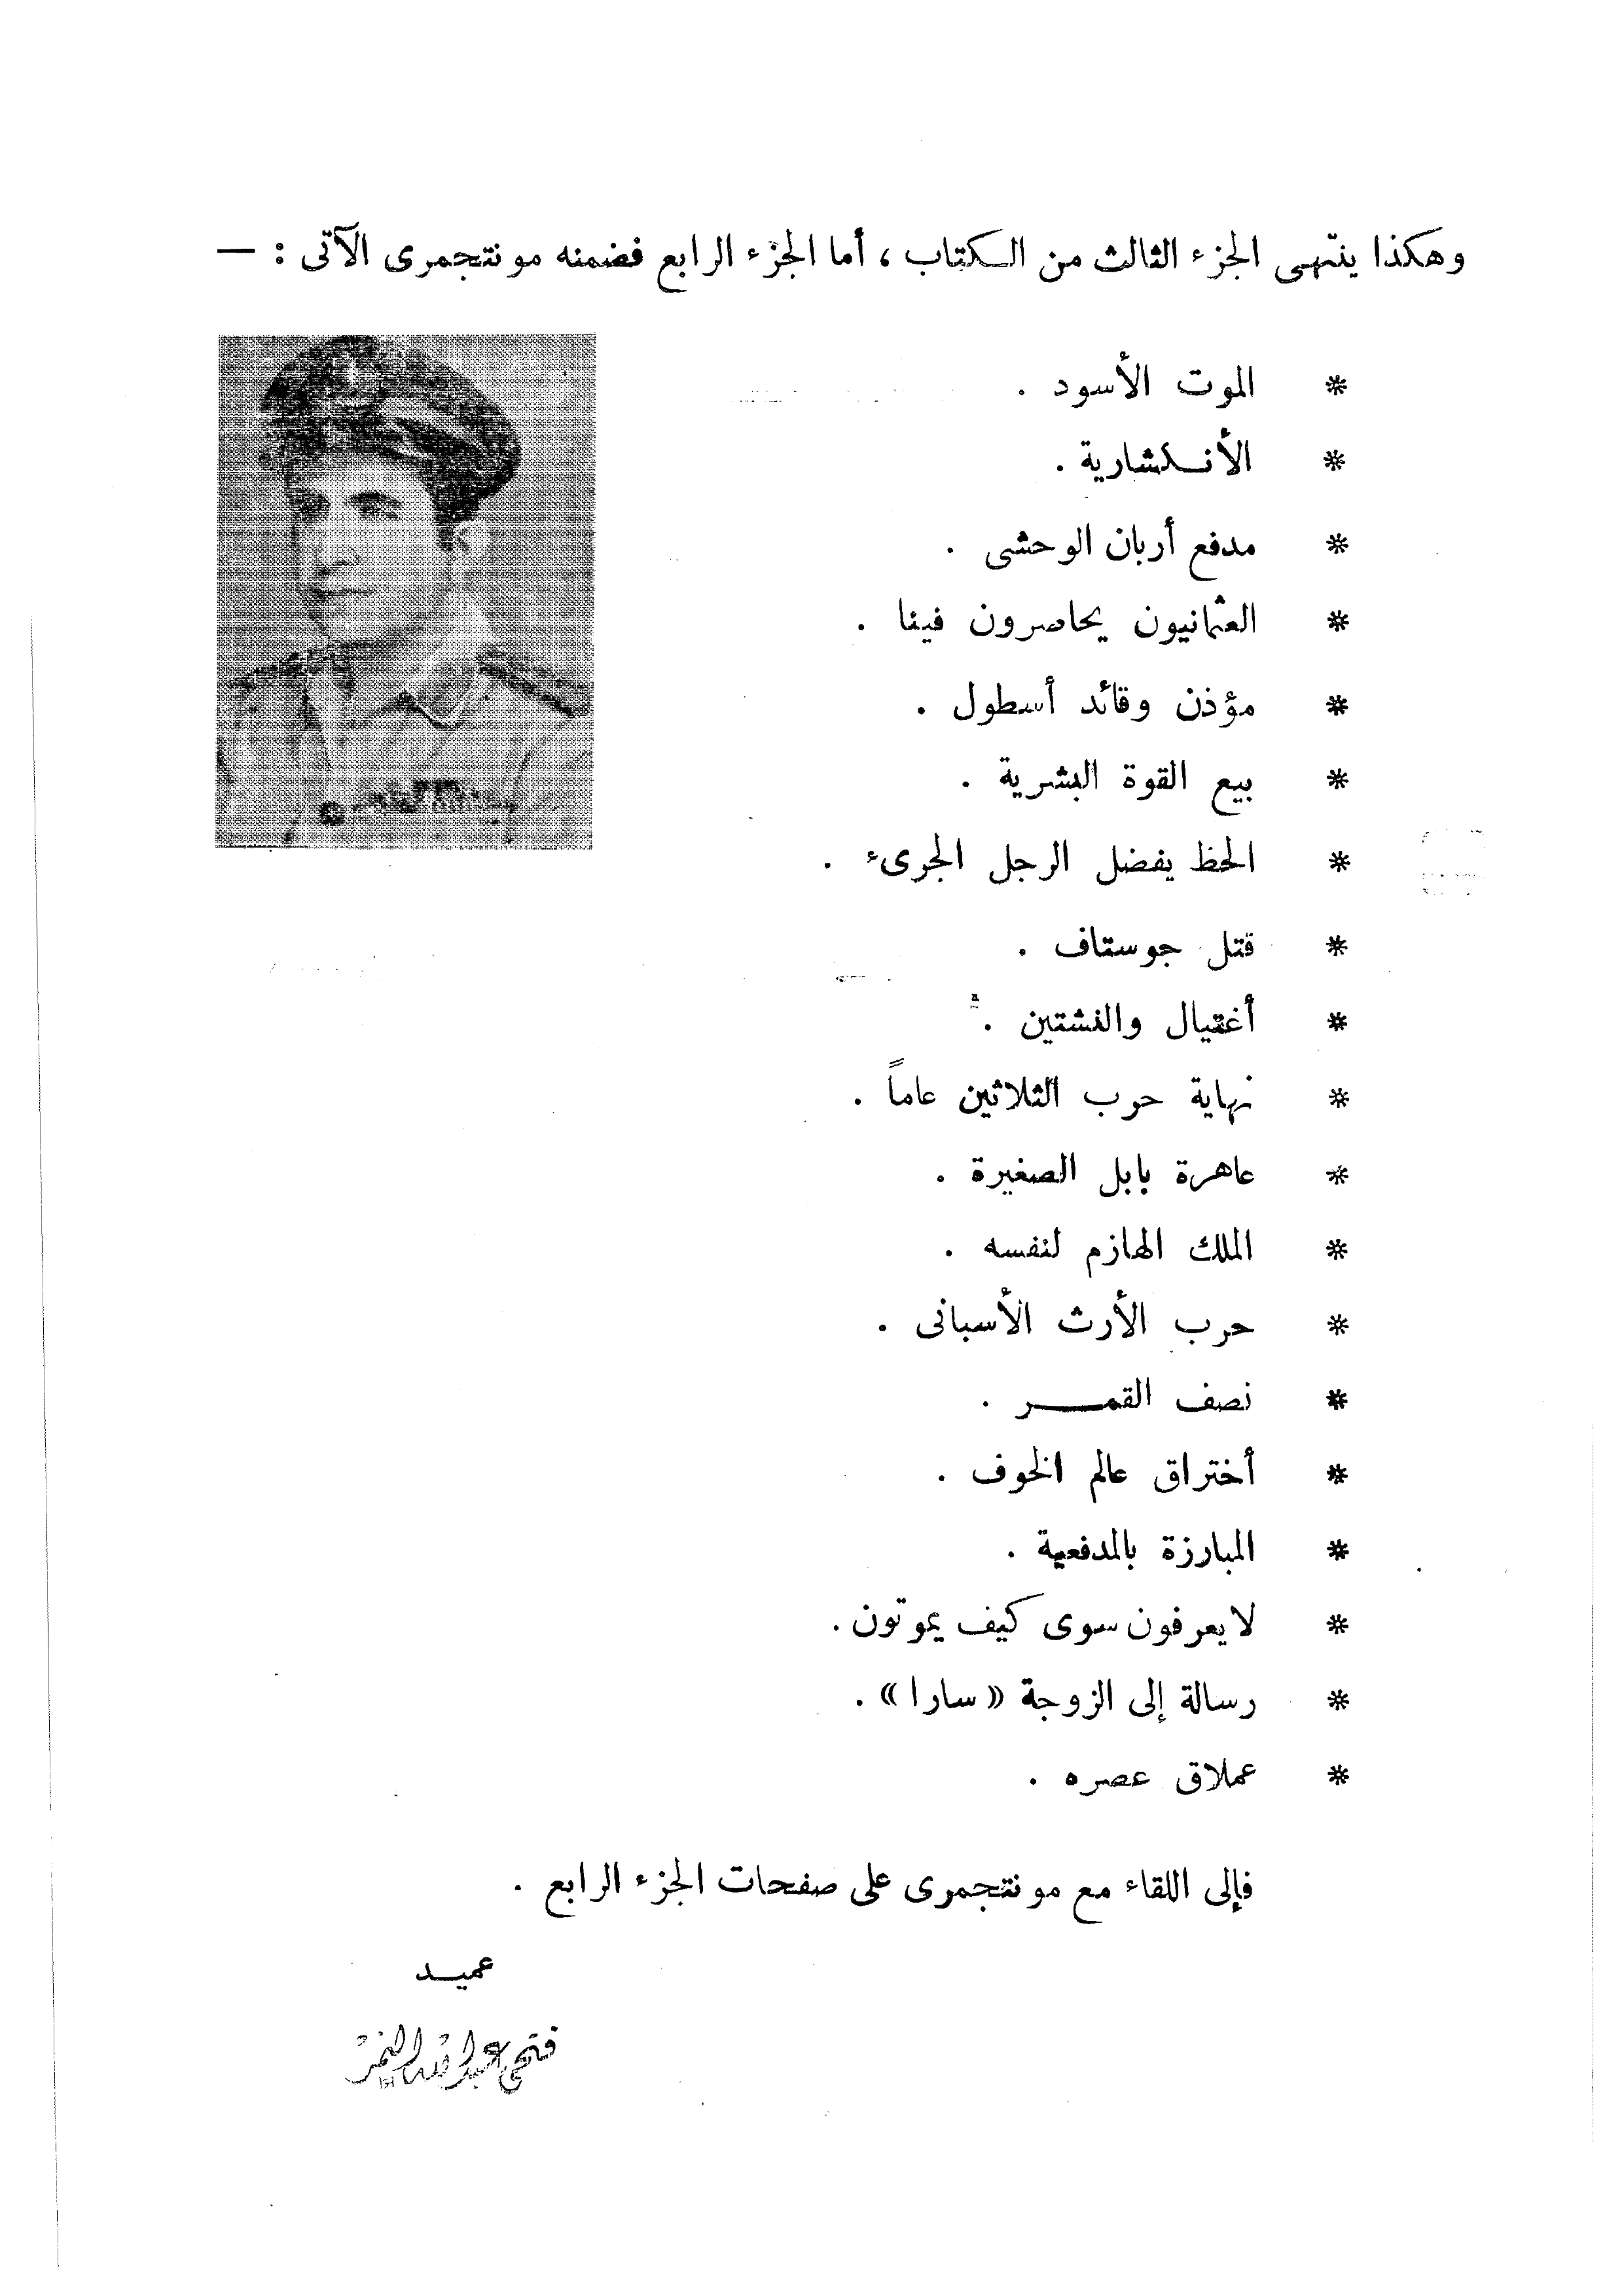 وهكذا ينتهى الجزء الثالث من الكتاب ، أما الجزء الرابع فضمنه مونتجمرى الآتى : —
* الموت الأسود .
* الأنكشارية .
* مدفع أربان الوحشى .
* العثمانيون يحاصرون فينا .
* مؤذن وقائد أسطول .
* بيع القوة البشرية .
* الحظ يفضل الرجل الجرىء .
* قتل جوستاف .
* أغتيال والنشتين .
* نهاية حرب الثلاثين عاماً .
* عاهرة بابل الصغيرة .
* الملك الهازم لنفسه .
* حرب الأرث الأسبانى .
* نصف القمر .
* أختراق عالم الخوف .
* المبارزة بالمدفعية .
* لا يعرفون سوى كيف يموتون .
* رسالة إلى الزوجة «سارا» .
* عملاق عصره .
فإلى اللقاء مع مونتجمرى على صفحات الجزء الرابع .
عميد
فتحى عبد الله النمر